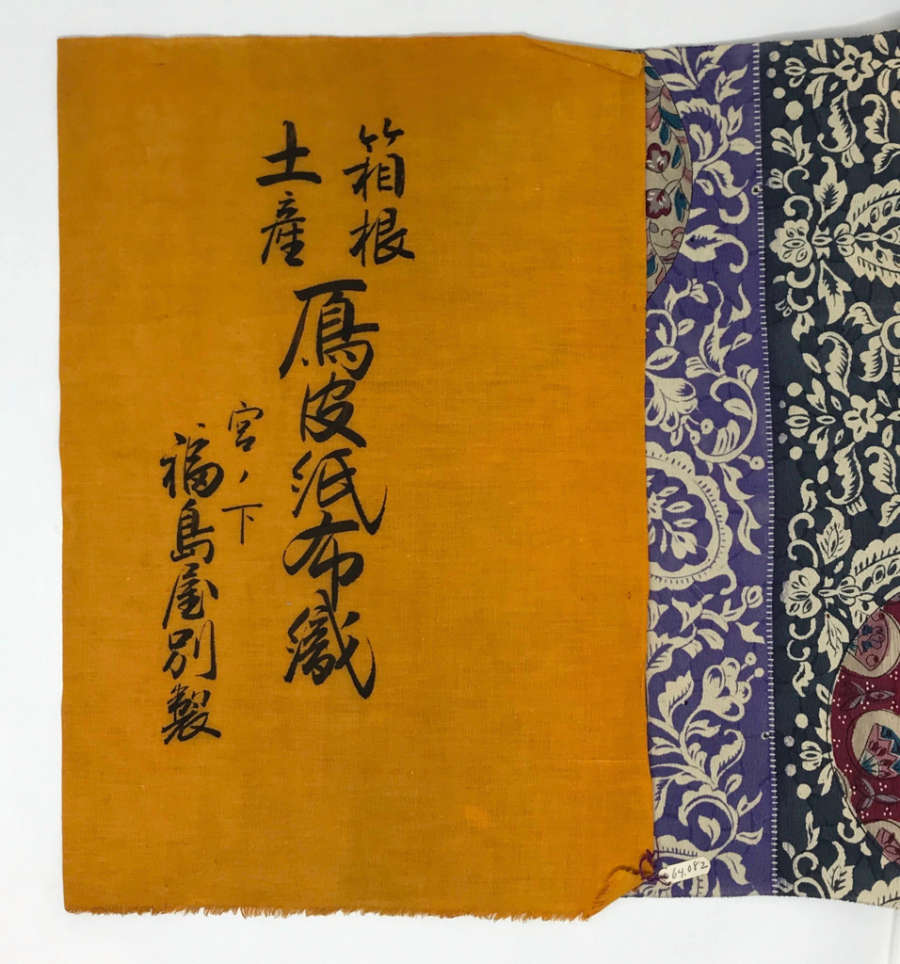 箱根
土産
鳫皮紙布織
宮ノ下
福島屋別製
64.082